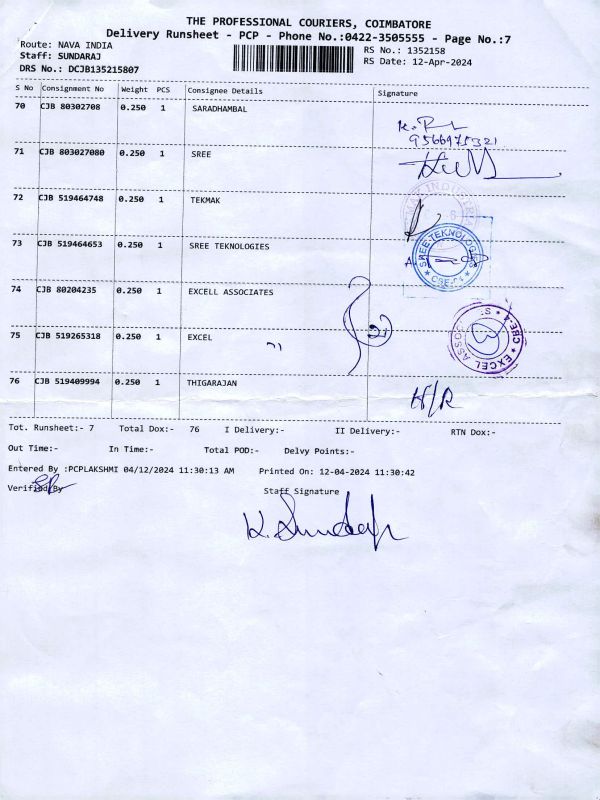 THE PROFESSIONAL COURIERS, COIMBATORE
Delivery Runsheet - PCP - Phone No.:0422-3505555 - Page No.:7
Route: NAVA INDIA RS No.: 1352158
Staff: SUNDARAJ RS Date: 12-Apr-2024
DRS No.: DCJB135215807
S No Consignment No Weight PCS Consignee Details Signature
70 CJB 80302708 0.250 1 SARADHAMBAL
9566975321
71 CJB 803027080 0.250 1 SREE
72 CJB 519464748 0.250 1 TEKMAK
73 CJB 519464653 0.250 1 SREE TEKNOLOGIES
SREE TEKNOLOGIES
74 CJB 80204235 0.250 1 EXCELL ASSOCIATES
75 CJB 519265318 0.250 1 EXCEL
EXCEL ASSOC
76 CJB 519409994 0.250 1 THIGARAJAN H/R
Tot. Runsheet:- 7 Total Dox:- 76 I Delivery:- II Delivery:- RTN Dox:-
Out Time:- In Time:- Total POD:- Delvy Points:-
Entered By :PCPLAKSHMI 04/12/2024 11:30:13 AM Printed On: 12-04-2024 11:30:42
Verified By Staff Signature